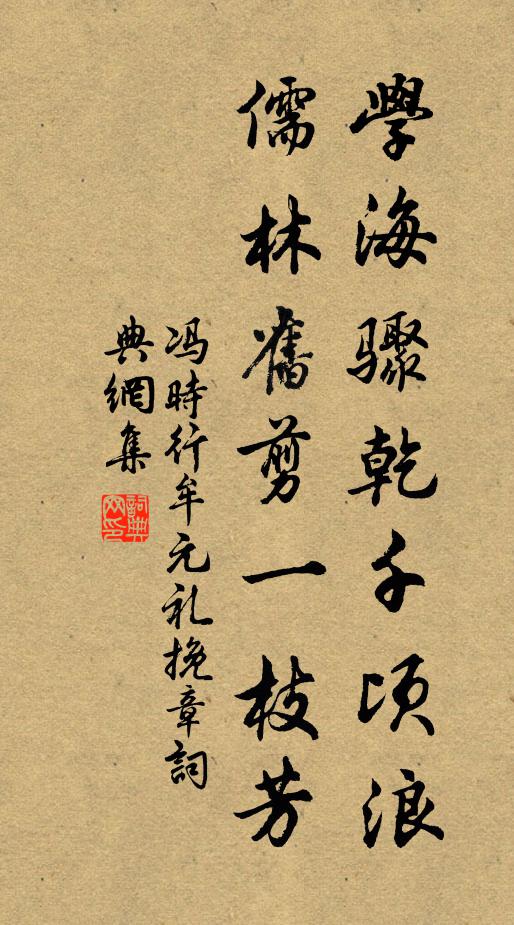 學海驟乾千頃浪
儒林舊剪一枝芳
冯時行牟元礼挽章詞
典網集
詞典網印